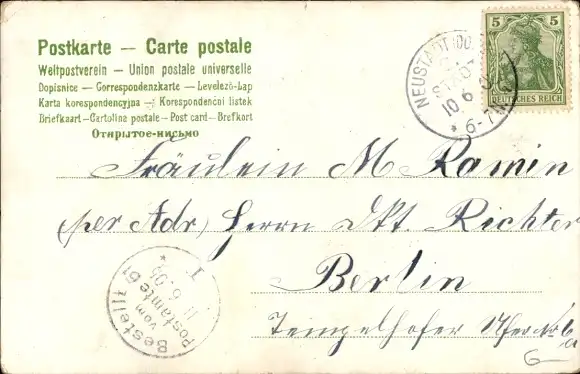 Postkarte — Carte postale
Weltpostverein — Union postale universelle
Dopisnice — Correspondenzkarte — Levelező-Lap
Karta korespondencyjna — Korespondenční listek
Briefkaart — Cartolina postale — Post card — Brefkort
Открытое-письмо
5 5
DEUTSCHES REICH
NEUSTADT
10 6
* 6-7
Fräulein M Ramin
(per Adr) Herrn Dpt. Richter
Berlin
Tempelhofer Ufer No 6/a
Bestellt
vom
Postamte
11.6.05
1
6